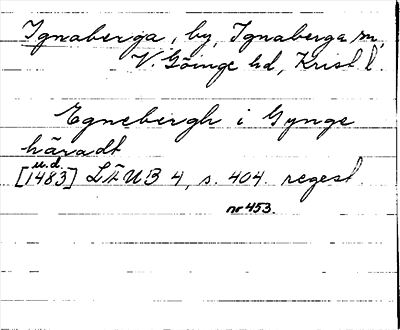 Ignaberga, by, Ignaberga sn,
V. Göinge hd, Krist l.
Egnebergh i Gynge
häradt
u.d.
[1483] LÄUB 4, s. 404. regest.
nr 453.